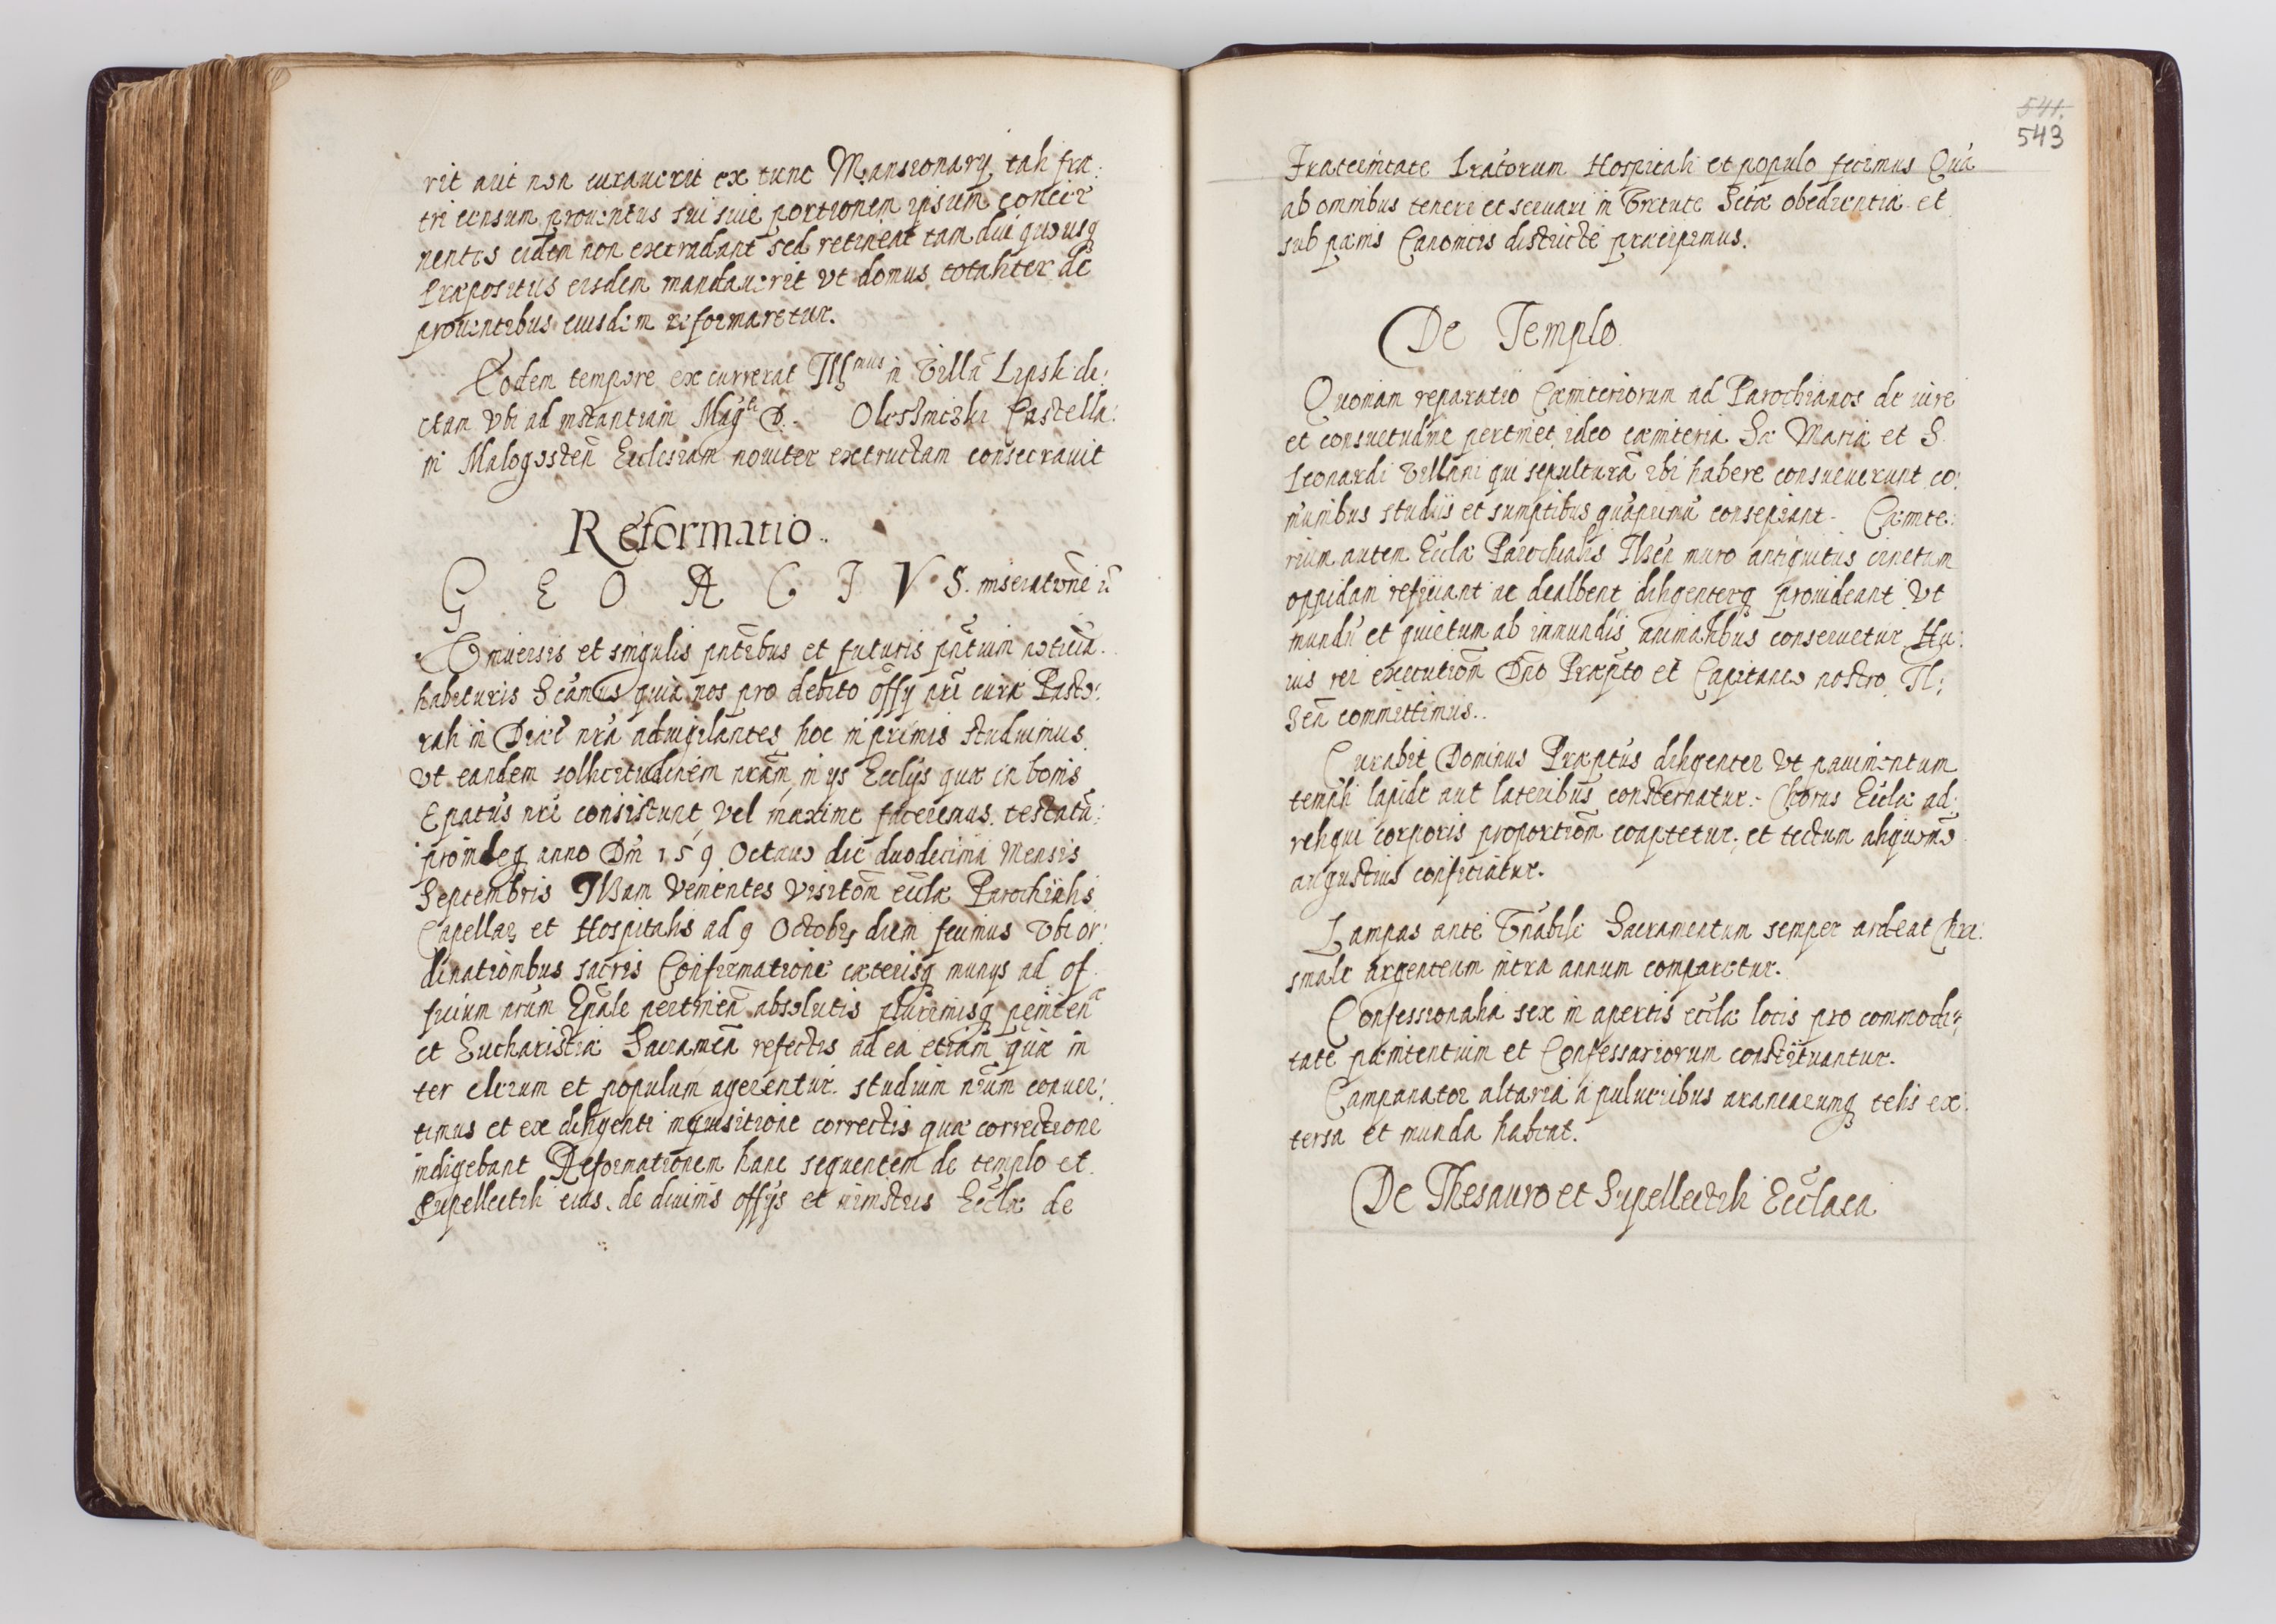 rit aut non curauerit ex tunc Mansionarÿ tali fra:
tri censum prouentus sui siue portionem ipsum concer
nentes eidem non extradant sed retineat tam diu quousq
Præpositus eisdem mandauerit vt domus totaliter de
prouentibus eiusdem reformaretur.
Eodem tempore excurrerat Illmus in Villã Lipski di:
ctam vbi ad instantiam Magci D. Oleszniczki Castella:
ni Malogosteñ Ecclesiam nouiter extructam consecrauit
Reformatio..
G E O R G I V S. miseratõne
Vniuersis et singulis pñtibus et futuris pñtium noticiã
habituris Scamus quia nos pro debito offÿ nri curæ Pasto:
rali in Diæc nra aduigilantes hoc inprimis studuimus
vt eandem sollicitudinem nram in ÿs Ecclÿs quæ in bonis
Epatus nri consistunt vel maxime faceremus. testatũ:
proindeq anno Dni 159 Octauo die duodecima Mensis
Septembris Ilsam venientes visitõm eccłæ Parochialis
Capellaꝝ et Hospitalis ad 9 Octobꝝ diem fecimus Vbi or:
dinationibus sacris Confirmatione cæterisq munÿs ad of
ficium nrum Epale pertineñ absolutis plurimisq penitenæ
et Eucharistiæ Sacrameñ refectis ad ea etiam quæ in
ter clerum et populum agerentur studium nrum conuer:
timus et ex diligenti inquisitione correctis quæ correctione
indigebant Reformationem hanc sequentem de templo et
Supellectili eius. de diuinis offÿs et ministris Eccłæ de
541.
543
Fraternitate Literatorum Hospitali et populo fecimus Quã
ab omnibus teneri et seruari in Virtute Sctæ obedientiæ et
sub pænis Canonicis districtè præcipimus.
De Templo
Quoniam reparatio Cæmiteriorum ad Parochianos de iure
et consuetudine pertinet ideo cæmiteria Sæ Mariæ et S
Leonardi Villani qui sepulturã ibi habere consueuerunt co:
munibus studiis et sumptibus quãprimũ consepiant. Cæmite:
rium autem Eccłæ Parochialis Ilseñ muro antiquitus cinctum
oppidani reficiant ac dealbent diligenterq prouideant Vt
mundũ et quietum ab immundis animalibus conseruetur. Hu:
ius rei executiõm Dño Præpto et Capitaneo nostro Il:
señ committimus..
Curabit Dominus Præptus diligenter vt pauimentum
templi lapide aut lateribus consternatur. Chorus Eccłæ ad
reliqui corporis proportiõm coaptetur, et tectum aliquomõ
angustius conficiatur.
Lampas ante Vñabile Sacramentum semper ardeat Chri:
smale argenteum intra annum comparetur.
Confessionalia sex in apertis eccłæ locis pro commodi:
tate pænitentium et Confessariorum constituantur.
Campanator altaria a pulueribus aranearumq telis ex
tersa et munda habeat.
De Thesauro et Supellectili Eccłaca